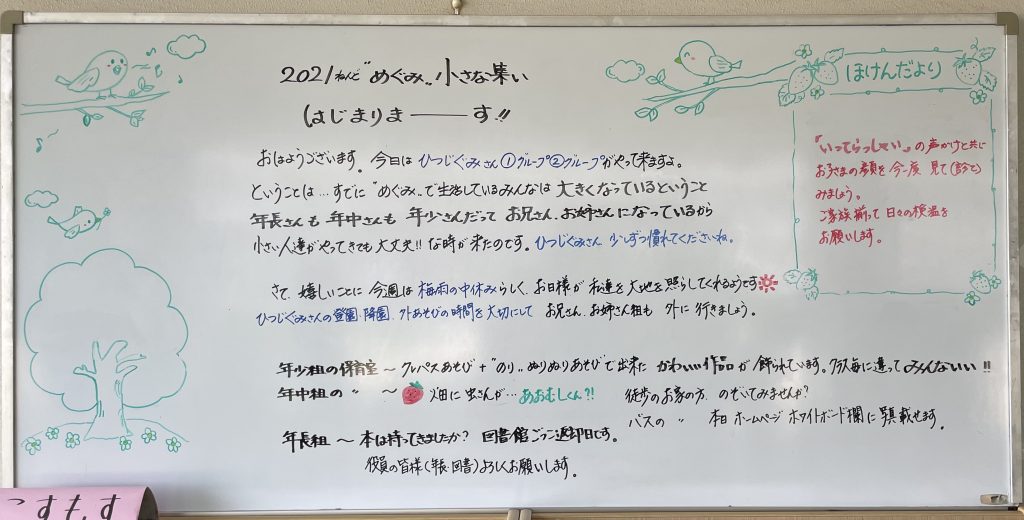 2021ねんど "めぐみ" 小さな集い
はじまりま――す!!
おはようございます。今日は ひつじぐみさん①グループ②グループがやって来ますよ。
ということは…すでに"めぐみ"で生活しているみんなは 大きくなっているということ
年長さんも 年中さんも 年少さんだって お兄さん、お姉さんになっているから
小さい人達がやってきても大丈夫!! な時が来たのです。ひつじぐみさん 少しずつ慣れてくださいね。
さて、嬉しいことに 今週は 梅雨の中休みらしく、お日様が 私達を 大地を 照らしてくれるようです
ひつじぐみさんの登園・降園・外あそびの時間を大切にして お兄さん、お姉さん組も 外に行きましょう。
年少組の保育室 〜 クレパスあそび + "のり" ぬりぬりあそびで出来た かわいい作品が飾られています。クラス毎に違って みんないい!!
年中組の 〃 〜 畑に虫さんが… あおむしくん?! 徒歩のお家の方、のぞいてみませんか?
バスの 〃 本日 ホームページ ホワイトボード欄に写真載せます。
年長組 〜 本は持ってきましたか? 図書館ごっこ返却日です。
役員の皆様(年長 図書)よろしくお願いします。
ほけんだより
『いってらっしゃい』の声かけと共に
お子さまの顔を今一度 見て(診て)
みましょう。
ご家族揃って 日々の検温を
お願いします。
こすもす